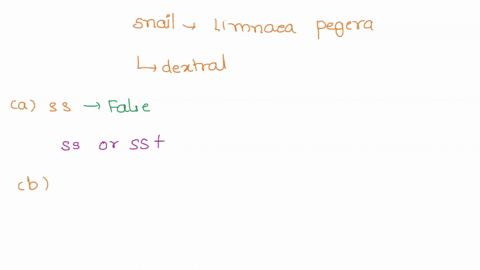 snail → Limnaea pegera
↳ dextral
(a) ss → False
ss or ss+
(b)